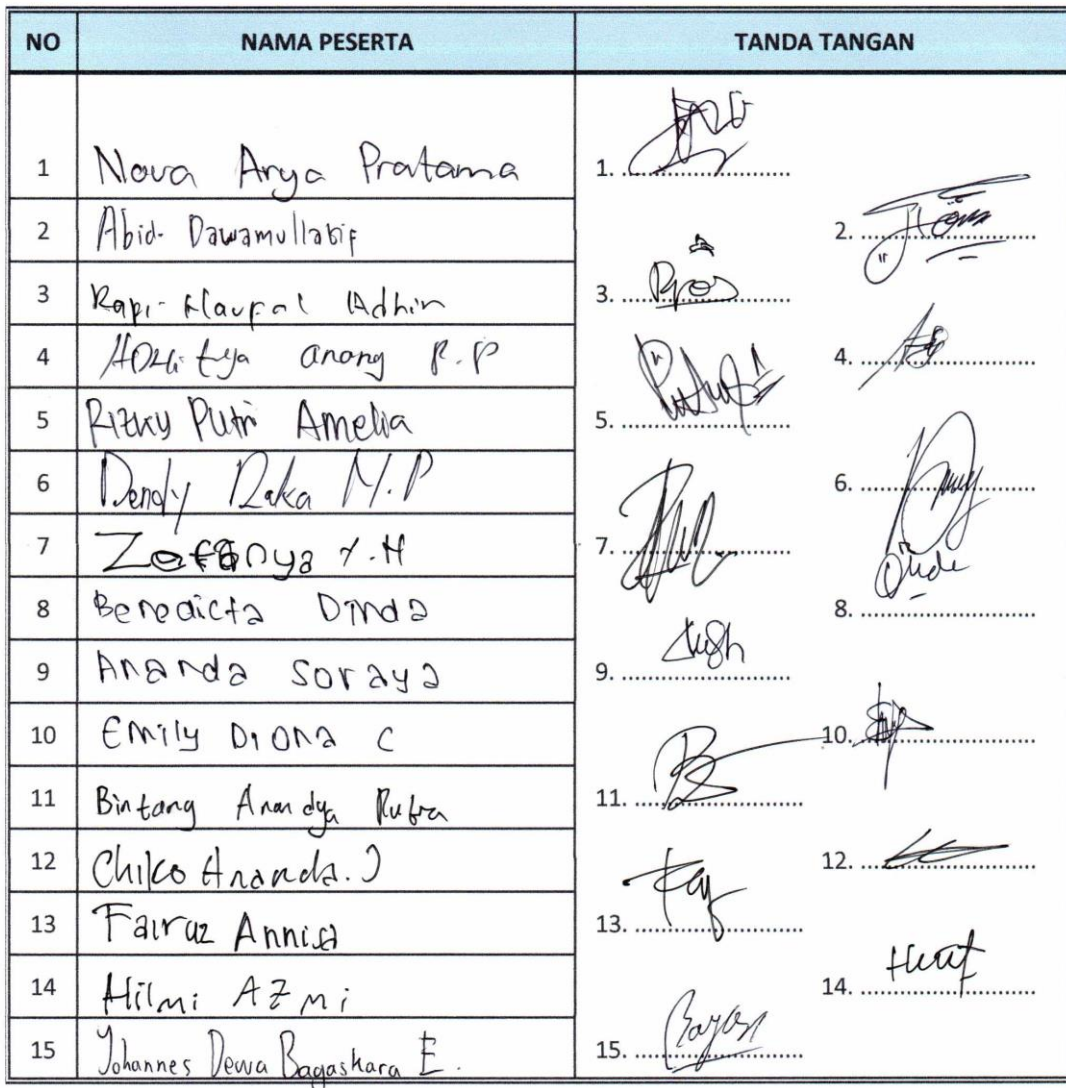 NO NAMA PESERTA TANDA TANGAN
1 Nova Arya Pratama 1.
2 Abid Dawamullatif 2.
3 Rapi Naufal Adhin 3.
4 anang P.P 4.
5 Rizky Putri Amelia 5.
6 Dendy Raka M.P 6.
7 Zefanya Y.H 7.
8 Benedicta Dinda 8.
9 Ananda Soraya 9.
10 Emily Diona C 10.
11 Bintang Anandya Putra 11.
12 Chiko Ananda.J 12.
13 Fairuz Annisa 13.
14 Hilmi Azmi 14.
15 Johannes Dewa Bagaskara E. 15.